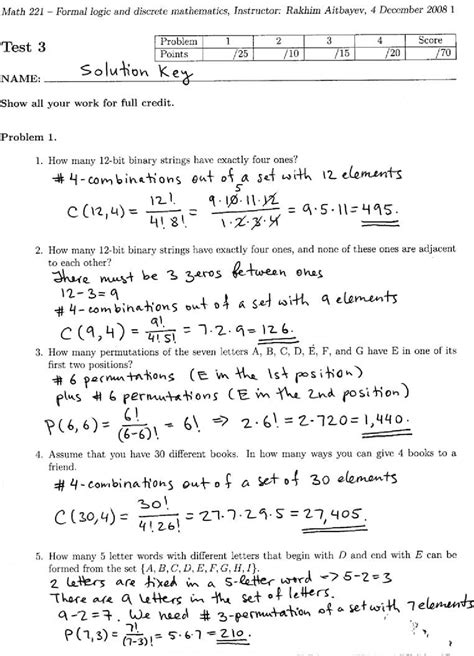 Math 221 – Formal logic and discrete mathematics, Instructor: Rakhim Aitbayev, 4 December 2008 1
Test 3
Problem 1 2 3 4 Score
Points /25 /10 /15 /20 /70
NAME: Solution Key
Show all your work for full credit.
Problem 1.
1. How many 12-bit binary strings have exactly four ones?
# 4-combinations out of a set with 12 elements
C(12,4) = 12! / 4! 8! = 9·10·11·12 / 1·2·3·4 = 9·5·11 = 495.
5
2. How many 12-bit binary strings have exactly four ones, and none of these ones are adjacent
to each other?
There must be 3 zeros between ones
12-3=9
# 4-combinations out of a set with 9 elements
C(9,4) = 9! / 4! 5! = 7·2·9 = 126.
3. How many permutations of the seven letters A, B, C, D, E, F, and G have E in one of its
first two positions?
# 6 permutations (E in the 1st position)
plus # 6 permutations (E in the 2nd position)
P(6,6) = 6! / (6-6)! = 6! ⇒ 2·6! = 2·720 = 1,440.
4. Assume that you have 30 different books. In how many ways you can give 4 books to a
friend.
# 4-combinations out of a set of 30 elements
C(30,4) = 30! / 4! 26! = 27·7·29·5 = 27,405.
5. How many 5 letter words with different letters that begin with D and end with E can be
formed from the set {A, B, C, D, E, F, G, H, I}.
2 letters are fixed in a 5-letter word → 5-2=3
There are 9 letters in the set of letters.
9-2=7. We need # 3-permutation of a set with 7 elements
P(7,3) = 7! / (7-3)! = 5·6·7 = 210.